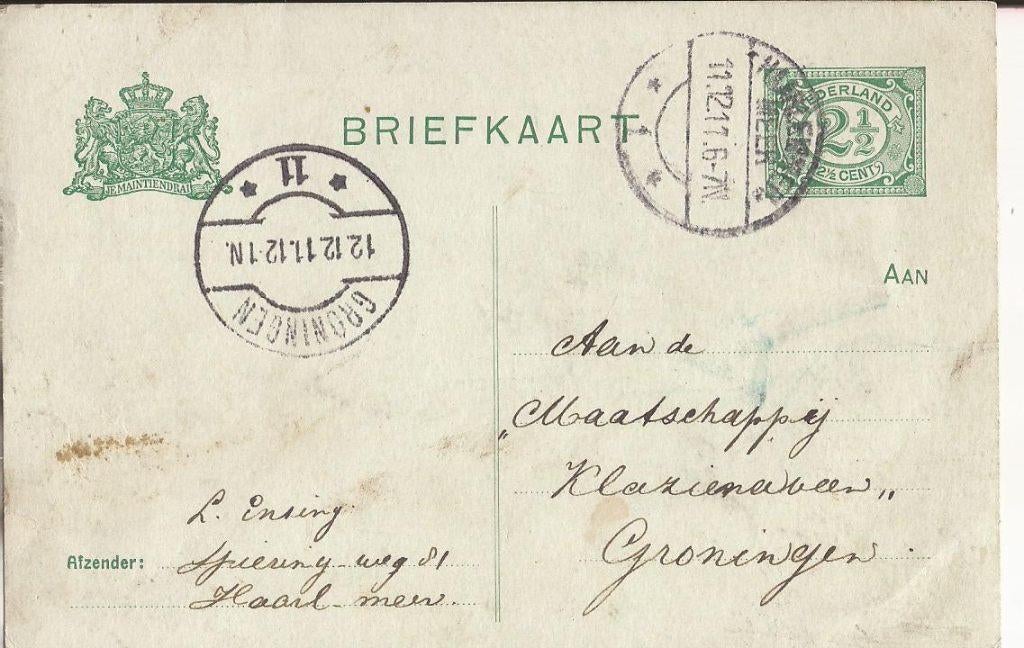 BRIEFKAART
JE MAINTIENDRAI
NEDERLAND
2½
2½ CENT
11.12.11.6-7N
1
11
12.12.11.12-1N.
GRONINGEN
AAN
Aan de
„Maatschappij
Klazienaveen„
Groningen.
L. Ensing
Afzender: Spieringweg 81
Haarl-meer.